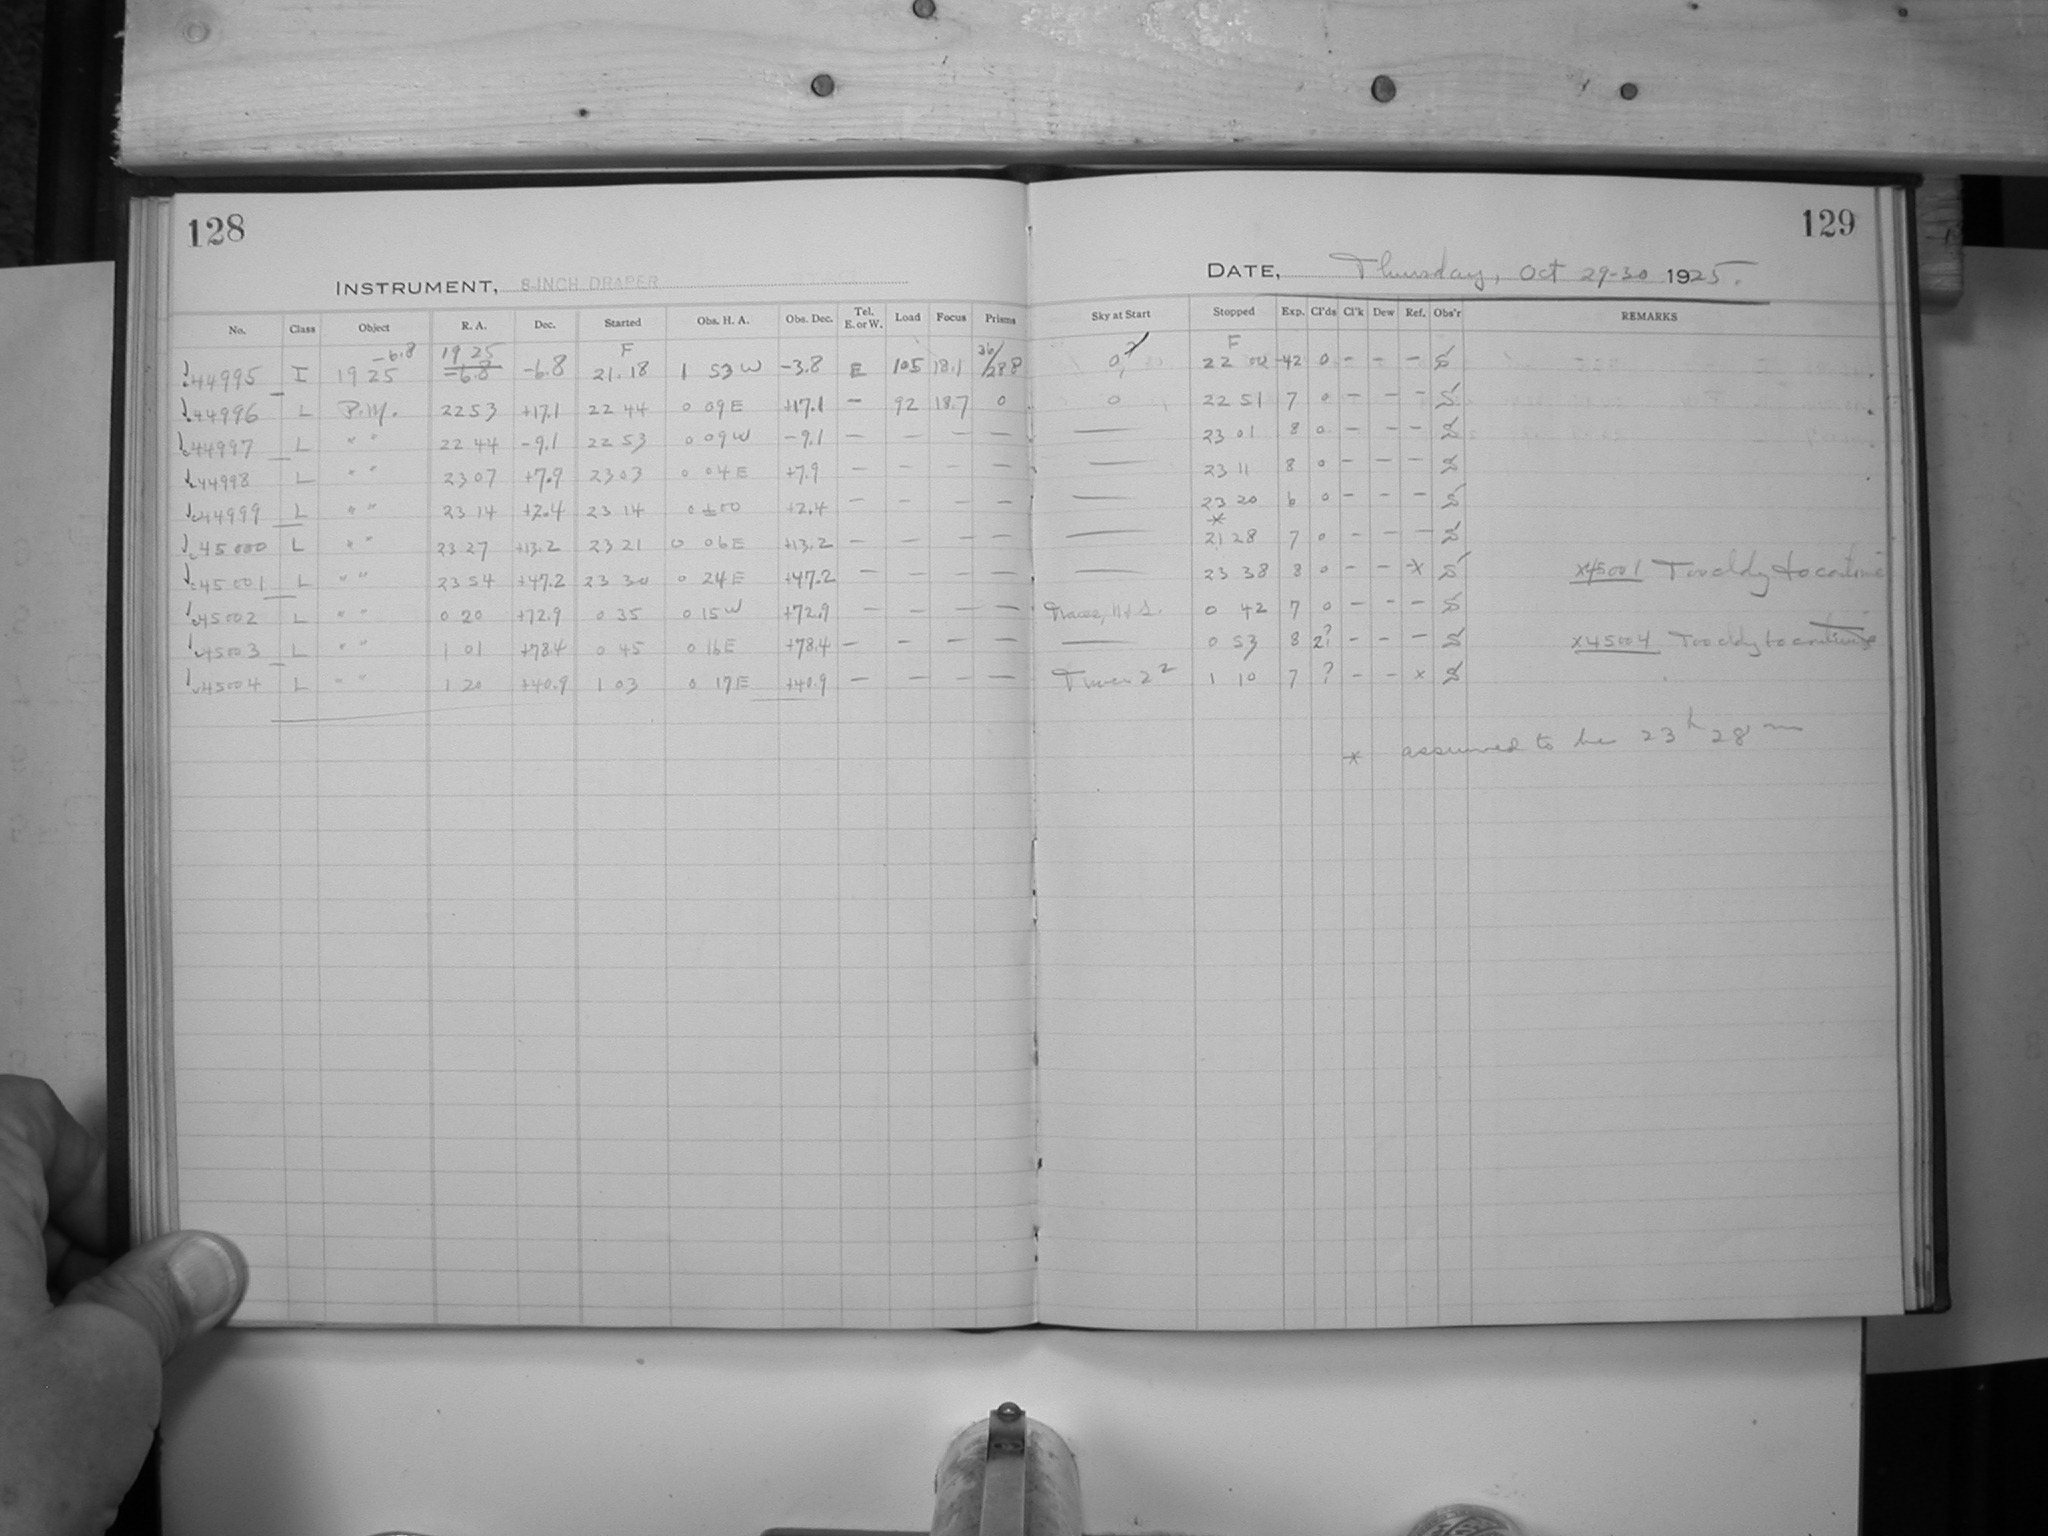 128
129
INSTRUMENT, 8-INCH DRAPER
DATE, Thursday, Oct 29-30 1925.
No. Class Object R. A. Dec. Started Obs. H. A. Obs. Dec. Tel. E. or W. Load Focus Prisms Sky at Start Stopped Exp. Cl'ds Cl'k Dew Ref. Obs'r REMARKS
-6.8 19 25 F F
44995 I 19 25 -6.8 -6.8 21.18 1 53 W -3.8 E 105 18.1 0 22 00 42 0 - - -
44996 L P.M. 22 53 +17.1 22 44 0 09 E +17.1 - 92 18.7 0 0 22 51 7 0 - - -
44997 L " " 22 44 -9.1 22 53 0 09 W -9.1 - - - - — 23 01 8 0 - - -
44998 L " " 23 07 +7.9 23 03 0 04 E +7.9 - - - - — 23 11 8 0 - - -
44999 L " " 23 14 +2.4 23 14 0 ±00 +2.4 - - - - — 23 20 6 0 - - -
*
45000 L " " 23 27 +13.2 23 21 0 06 E +13.2 - - - - — 21 28 7 0 - - -
45001 L " " 23 54 +47.2 23 30 0 24 E +47.2 - - - - — 23 38 8 0 - - -x x45001 Too cldy to continue
45002 L " " 0 20 +72.9 0 35 0 15 W +72.9 - - - - 0 42 7 0 - - -
45003 L " " 1 01 +78.4 0 45 0 16 E +78.4 - - - - — 0 53 8 2? - - - x45004 Too cldy to continue
45004 L " " 1 20 +40.9 1 03 0 17 E +40.9 - - - - 1 10 7 ? - - x
* assumed to be 23 h 28 m